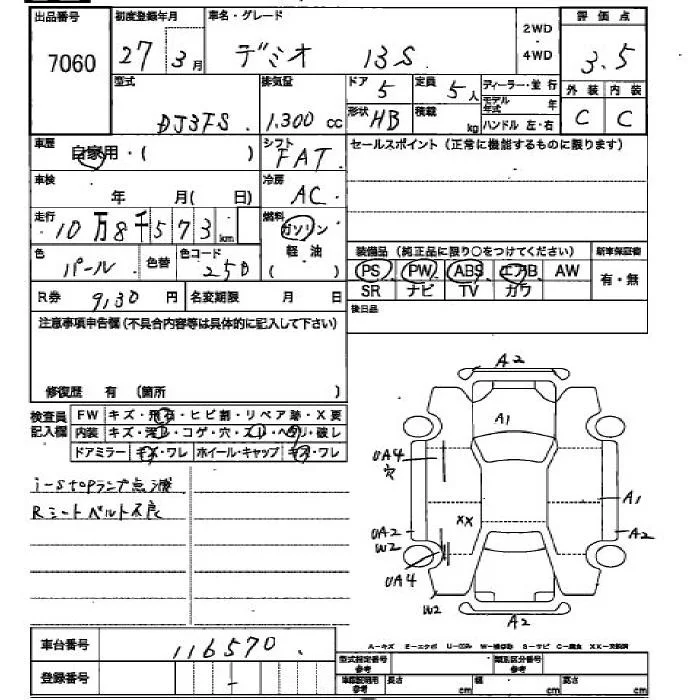 出品番号 初度登録年月 車名・グレード 2WD・4WD 評価点
7060 27年3月 デミオ 13S 3.5
型式 排気量 ドア 5 定員 5人 ディーラー・並行 外装 内装
DJ3FS 1,300cc 形状 HB 積載 kg モデル年式 年 ハンドル 左・右 C C
車歴 自家用・( ) シフト FAT セールスポイント(正常に機能するものに限ります)
車検 年 月( 日) 冷房 AC
走行 10万8千573km 燃料 ガソリン・軽油 ( )
色 パール 色替 色コード 25D 装備品(純正品に限り○をつけてください) 新車保証書
PS PW ABS エアB AW 有・無
R券 9,30円 名変期限 月 日 SR ナビ TV ガワ
注意事項申告欄(不具合内容等は具体的に記入して下さい) 後日品
修復歴 有 (箇所 )
検査員記入欄 FW キズ・飛石・ヒビ割・リペア跡・X要
内装 キズ・汚れ・コゲ・穴・スレ・ヘタリ・破レ
ドアミラー キズ・ワレ ホイール・キャップ キズ・ワレ
i-stopランプ点滅
Rシートベルト不良
A2
A1
UA4
穴
A1
XX
UA2
W2
A2
UA4
W2
A2
車台番号 116570
A-キズ E-エクボ U-凹み W-補修跡 S-サビ C-腐食 XX-交換済
登録番号 - 型式指定番号 参考 類別区分番号 参考
車庫証明用 参考 長さ cm 幅 cm 高さ cm